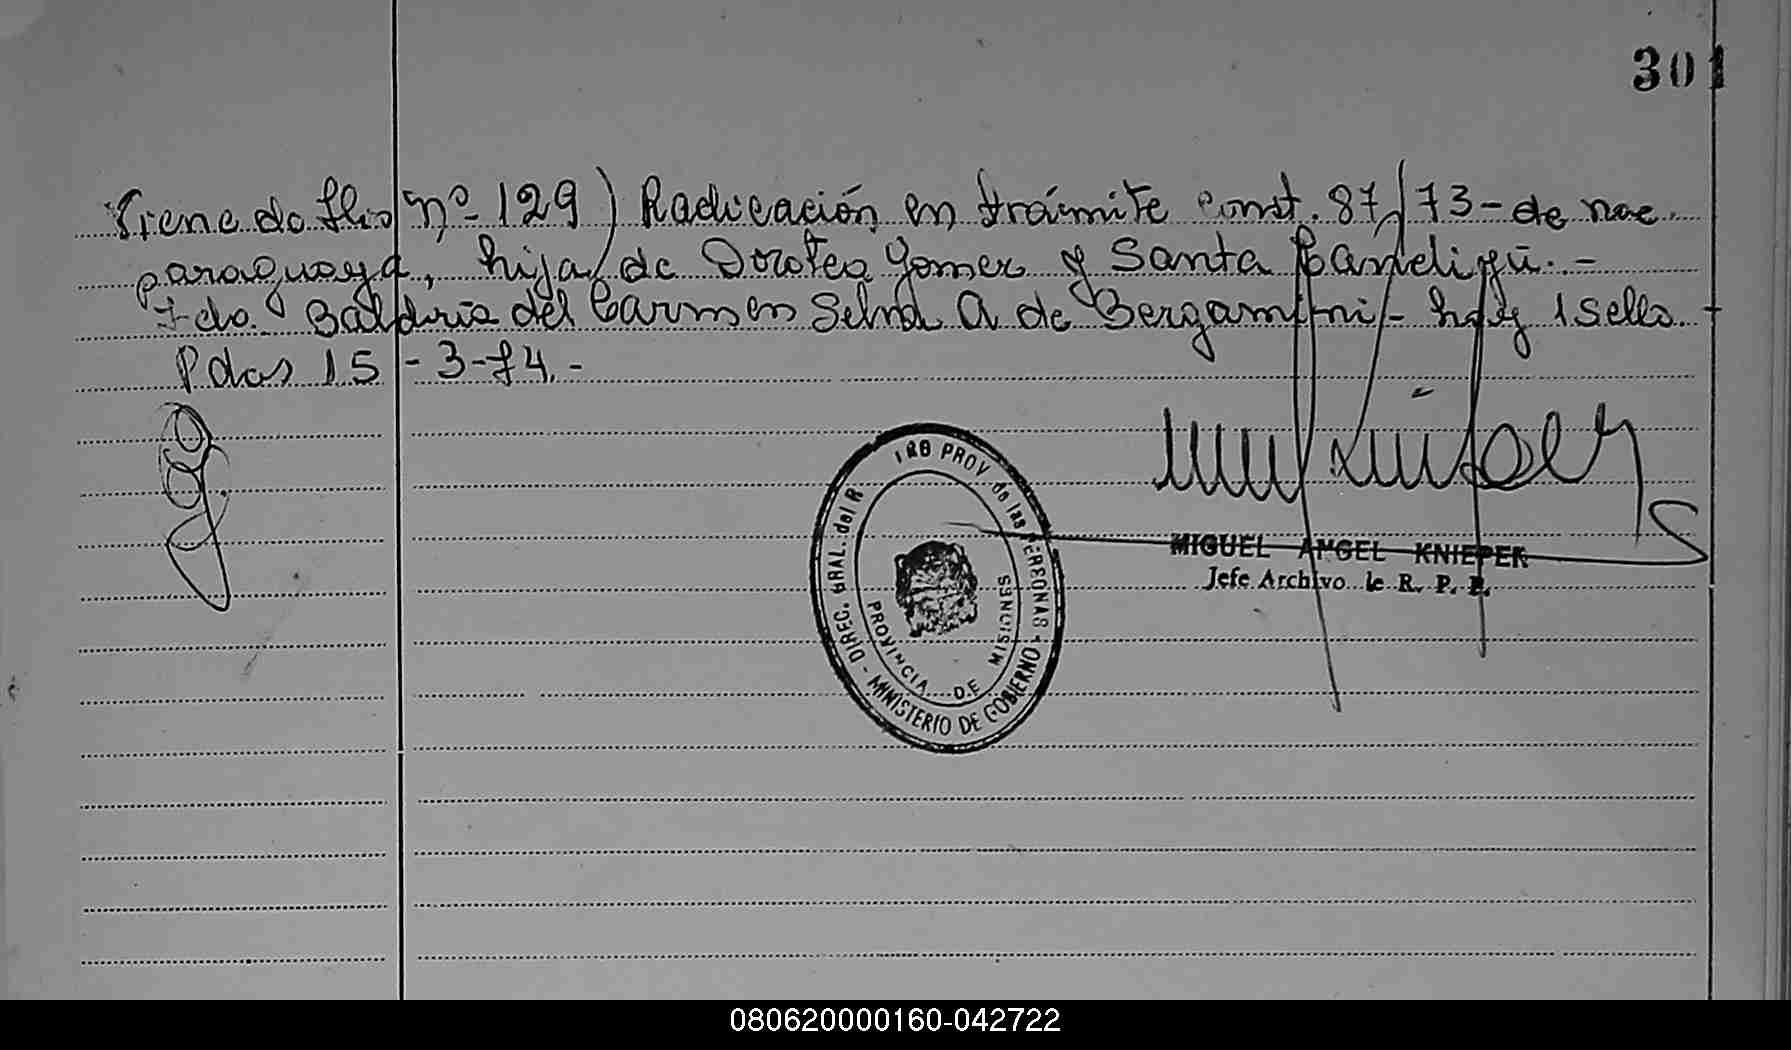 301
Viene do flio nº 129) Radicación en trámite const. 87/73 - de nac.
paraguaya, hija de Dorotea Gomez y Santa Candigú. -
Fdo. del Carmen Selva A de Bergamini - hay 1 sello -
Pdas 15 - 3 - 74. -
DIREC. GRAL. del R PROV de las PERSONAS - MINISTERIO DE GOBIERNO -
PROVINCIA DE MISIONES
MIGUEL ANGEL KNIEPER
Jefe Archivo de R. P. P.
080620000160-042722